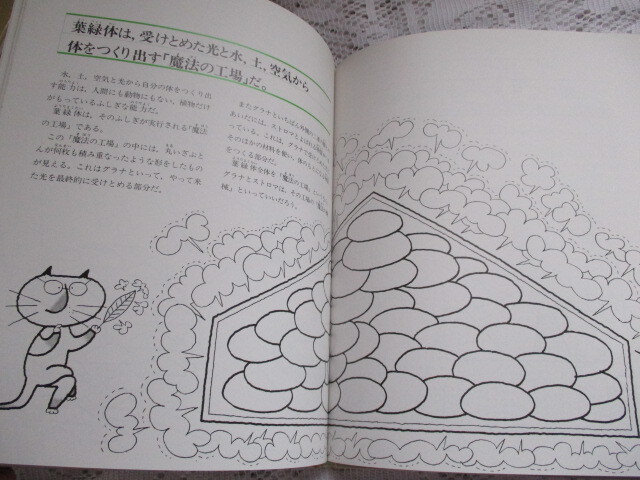 葉緑体は，受けとめた光と水，土，空気から
体をつくり出す「魔法の工場」だ。
水，土，空気と光から自分の体をつくり出
す能力は，人間にも動物にもない，植物だけ
がもっているふしぎな能力だ。
葉緑体は，そのふしぎが実行される「魔法
の工場」である。
この「魔法の工場」の中には，丸いざぶと
んが何枚も積み重なったような形をしたもの
が見える。これはグラナといって，やって来
た光を最終的に受けとめる部分だ。
またグラナといちばん外側の
あいだには，ストロマとよばれる
っている。これは，グラナが
そのほかの材料を使い，体の
をつくる部分だ。
葉緑体全体を「魔法の工場」
グラナとストロマは，その工場の「魔法の機
械」といっていいだろう。